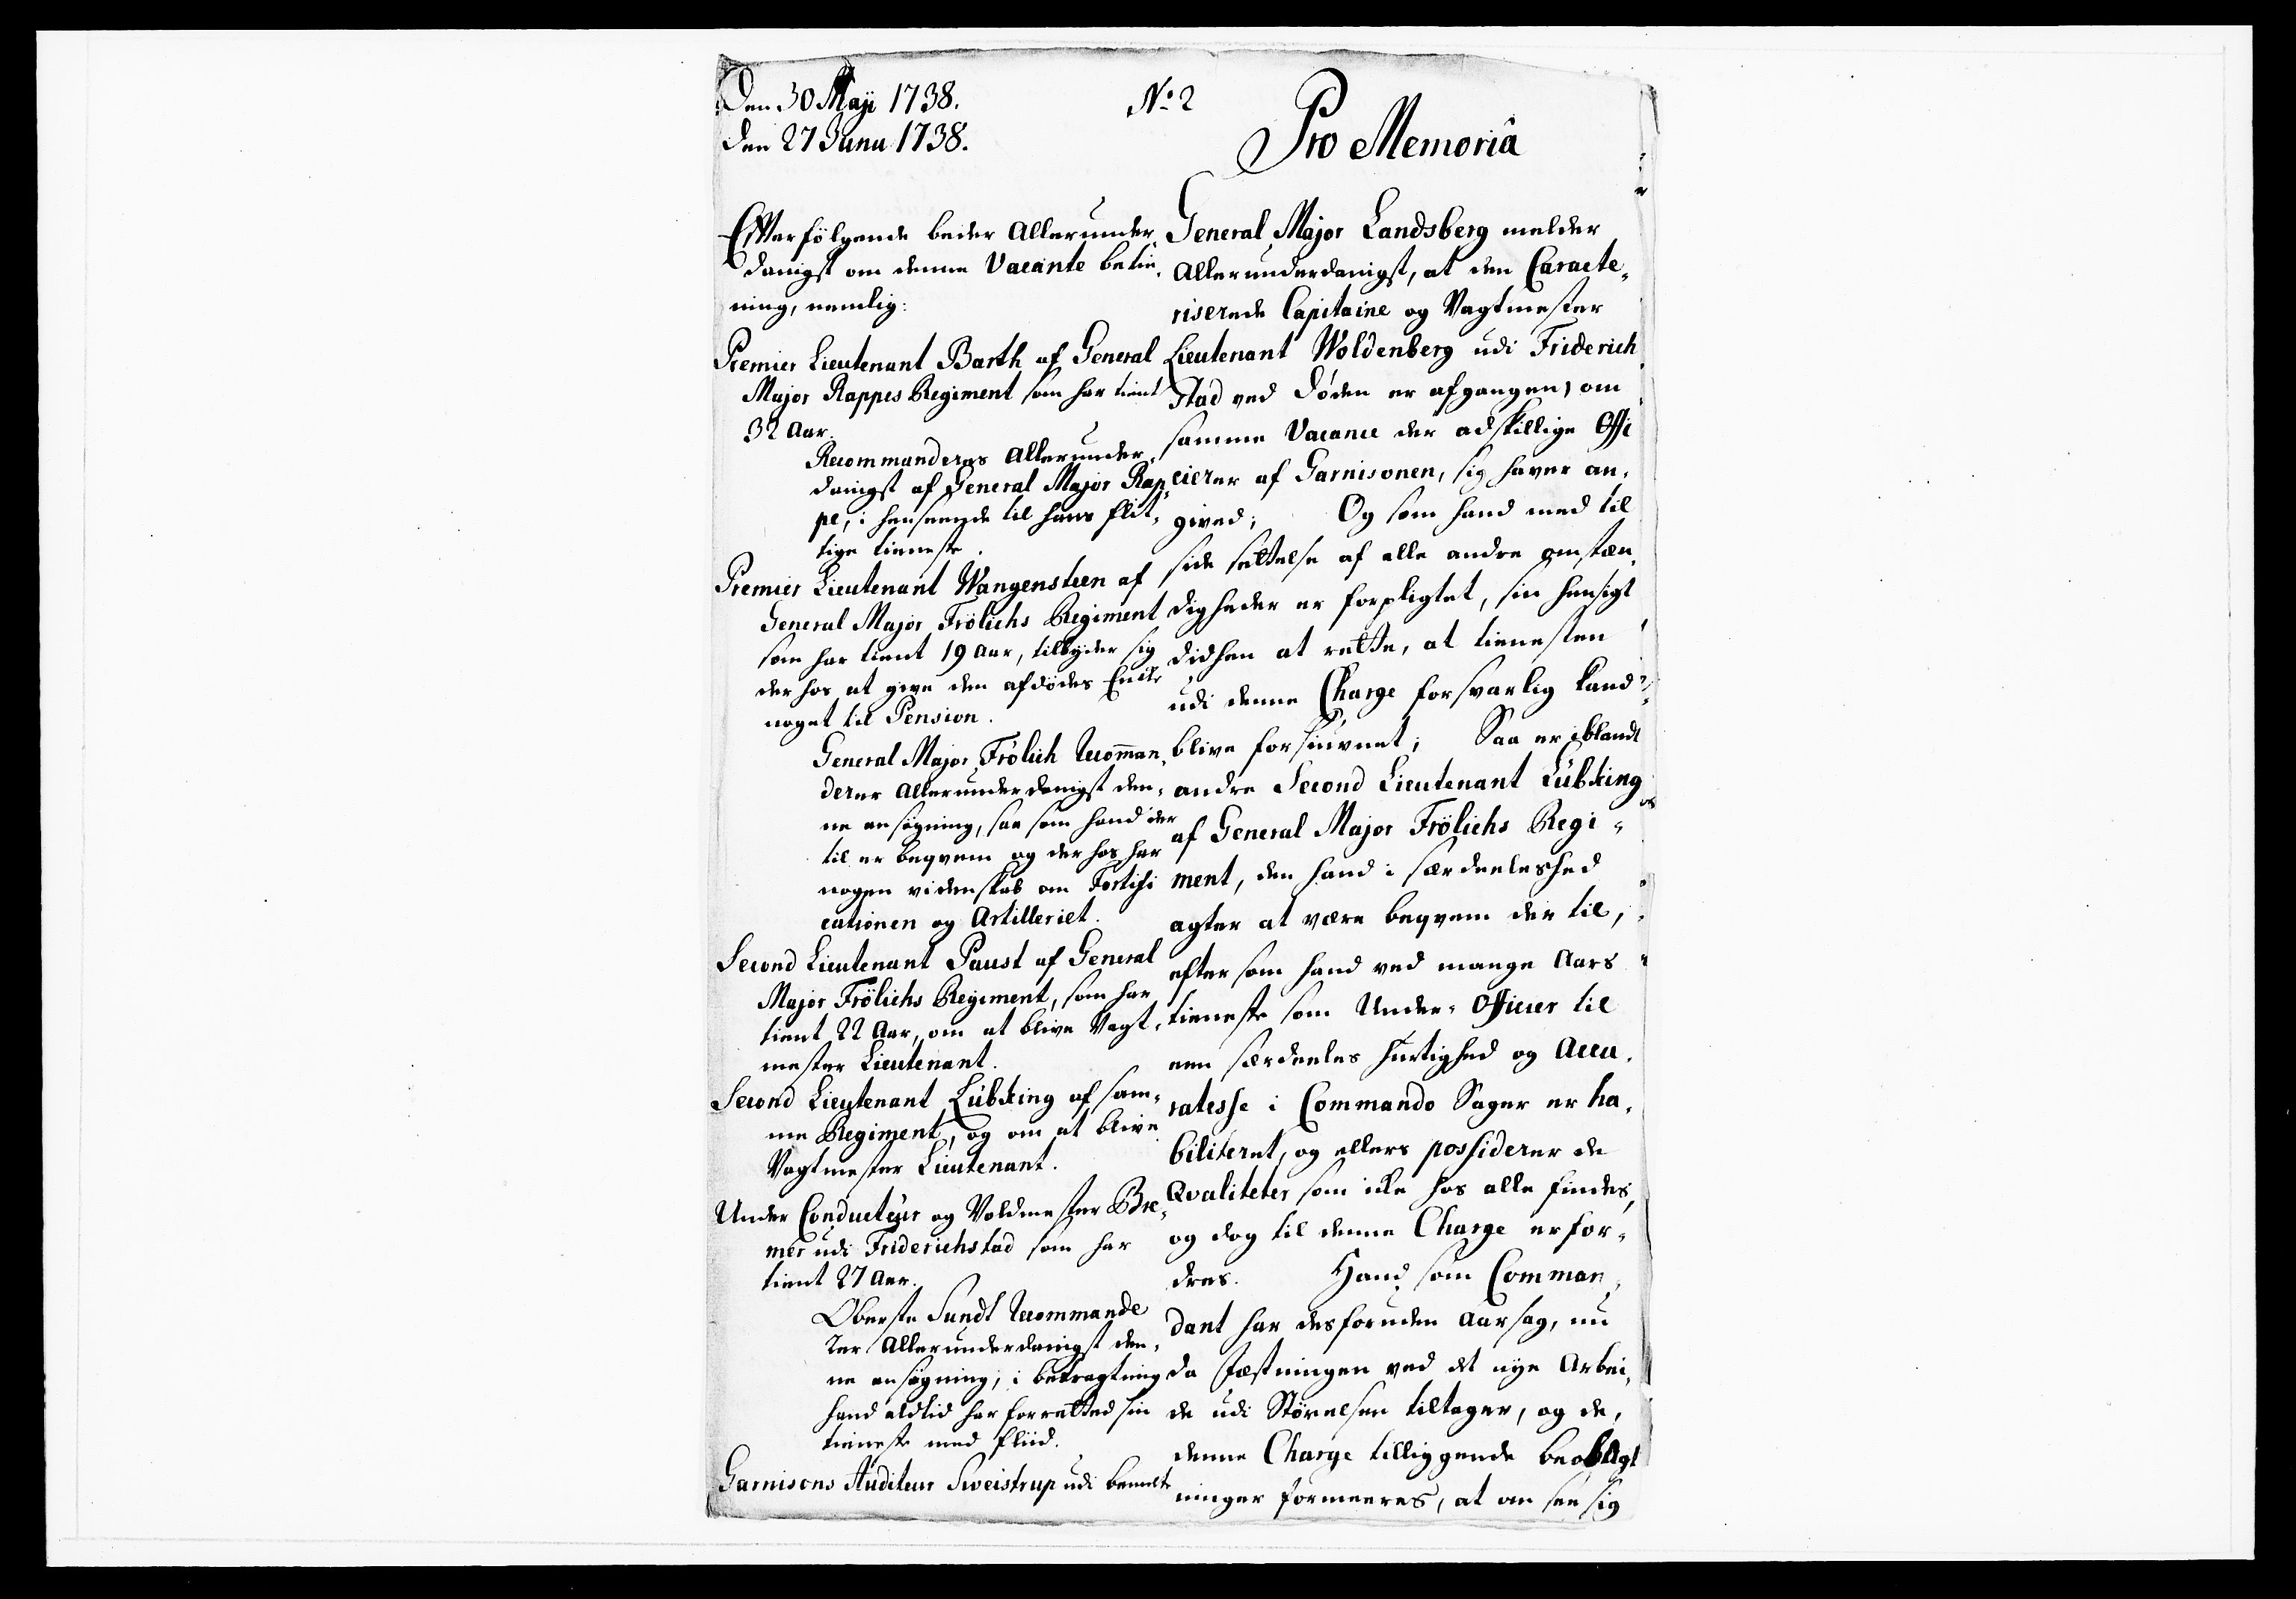 Den 30 Maji 1738.
Den 27 Junii 1738.
No. 2
Pro Memoriâ
Efterfölgende beder Allerunder,
danigst om denne Vacante betie,
ning, nemlig:
Premier Lieutenant Barth af General
Major Rappes Regiment som har tient
32 Aar.
Recommanderes Allerunder,
danigst af General Major Rap,
pe, i henseende til hans flit,
tige tieneste.
Premier Lieutenant Wangensteen af
General Major Frölichs Regiment
som har tient 19 Aar, tilbyder sig
der hos at give den afdödes Encke
noget til Pension.
General Major Frölich Recom̄an,
derer Allerunderdanigst den,
ne ansögning, saa som hand der
til er beqvem og der hos har
nogen videnskab om Fortifi
cationen og Artilleriet.
Second Lieutenant Paust af General
Major Frölichs Regiment, som har
tient 22 Aar, om at blive Vagt,
mester Lieutenant.
Second Lieutenant Lübking af sam,
me Regiment, og om at blive
Vagtmester Lieutenant.
Under Conducteur og Voldmester Bre,
mer udi Friderichstad som har
tient 27 Aar.
Oberste Sundt Recommande
rer Allerunderdanigst den,
ne ansögning, i betragtning
hand altid har forretted sin
tieneste med fliid.
Garnisons Auditeur Sweistrup udi bemelte
General Major Landsberg melder
Allerunderdanigst, at den Caracte,
riserede Capitaine og Vagtmester
Lieutenant Woldenberg udi Friderich
stad ved döden er afgangen, om
samme Vacance der adskillige Offi
cierer af Garnisonen, sig haver an,
gived; Og som hand med til
side settelse af alle andre omstæn,
digheder er forpligtet, sin hensigt
didhen at rette, at tienesten
udi denne Charge forsvarlig kand
blive forsiuvnet; Saa er iblandt
andre Second Lieutenant Lübking
af General Major Frölichs Regi,
ment, den hand i særdeeleshed
agter at være beqvem der til,
efter som hand ved mange Aars
tieneste som Under-Officier til
een særdeeles hurtighed og Accu,
ratesse i Commando Sager er ha,
biliteret, og ellers possiderer de
Qvaliteter som icke hos alle findes,
og dog til denne Charge erfor,
dres. Hand som Comman,
dant har desforuden Aarsag, nu
da Fæstningen ved det nye Arbei,
de udi Störelsen tiltager, og de,
denne Charge tilliggende beobagt
ninger formeeres, at om see sig